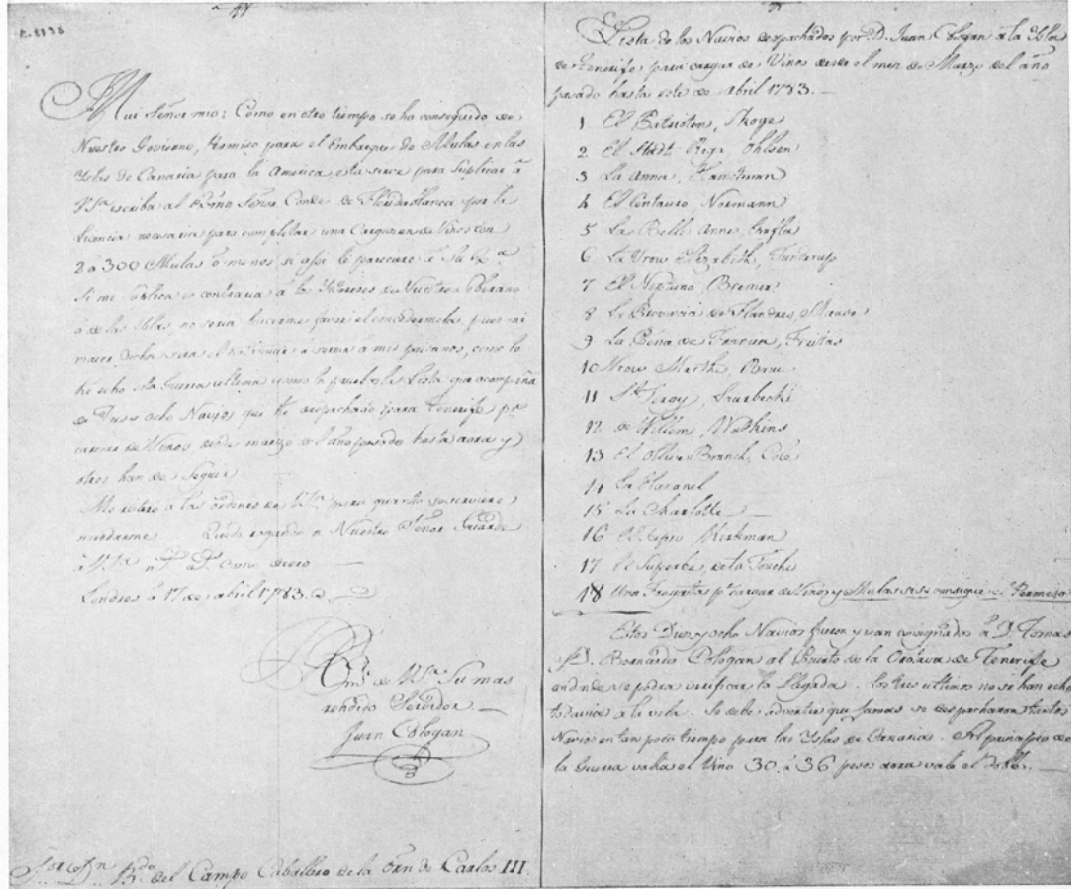 E. 8138
Mui Señor mio: Como en otro tiempo se ha conseguido de
Nuestro Govierno, Permiso para el Embarque de Mulas en las
Yslas de Canaria para la America esta sirve para Suplicar á
V.Sa. escriba al Exmo Señor Conde de Florida blanca por la
Licencia necesaria para completar una Cargazon de Vinos con
2 á 300 Mulas ó menos si assi le pareciere á Su Exa.
Si mi Suplica es contraria á los Yntereses de Nuestro Soberano
ó de las Yslas, no seria hacerme favor el concedermela, pues mi
mayor Dicha sera el continuar á servir á mis paysanos, como lo
he echo esta Guerra ultima y como lo prueba la Lista que acompaña
de Diez y ocho Navios que he despachado para Tenerife pa.
cargar de Vinos desde marzo del año pasado hasta aora y
otros han de Seguir
Me reitero a las ordenes de V.Sa. para quanto se serviere
mandarme. Quedo rogando a Nuestro Señor Guarde
á V.Sa. ms. as. como deseo
Londres á 17 de abril 1783.
de V.Sa. Su mas
rendido Servidor
Juan Cologan
Sor. Dn. Bdo. del Campo Caballero de la Orn de Carlos III.
Lista de los Navios despachados por D. Juan Cologan á la Ysla
de Tenerife para cargar de Vinos desde el mes de Marzo del año
pasado hasta este de Abril 1783.
1 El Patrioten, Skoge
2 El Stadt Riga, Ohlsen
3 La Anna,
4 El Centauro Normann
5 La Belle Anne,
6 La Vrow Elizabeth,
7 El Neptuno Bremer
8 La Provincia de Flandres,
9 La Reina de Francia, Freitas
10 Vrow Martha,
11
12 de Willem, Watkins
13 El Olive Branch, Cole
14 La
15 La Charlotte
16 Kirkman
17 Le Superbe, de la Touche
18 Una Fregata pa. cargar de Vino y Mulas si se consigue el Permiso
Estos Diez y ocho Navios fueron y van consignados á D. Tomas
y D. Bernardo Cologan al Puerto de la Orotava de Tenerife
endonde se podra verificar la Llegada. Los tres ultimos no se han echo
todavia á la vela. Se debe advertir que Jamas se despacharon tantos
Navios en tan poco tiempo para las Yslas de Canarias. Al principio de
la Guerra valia el Vino 30 á 36 pesos aora vale el doble.